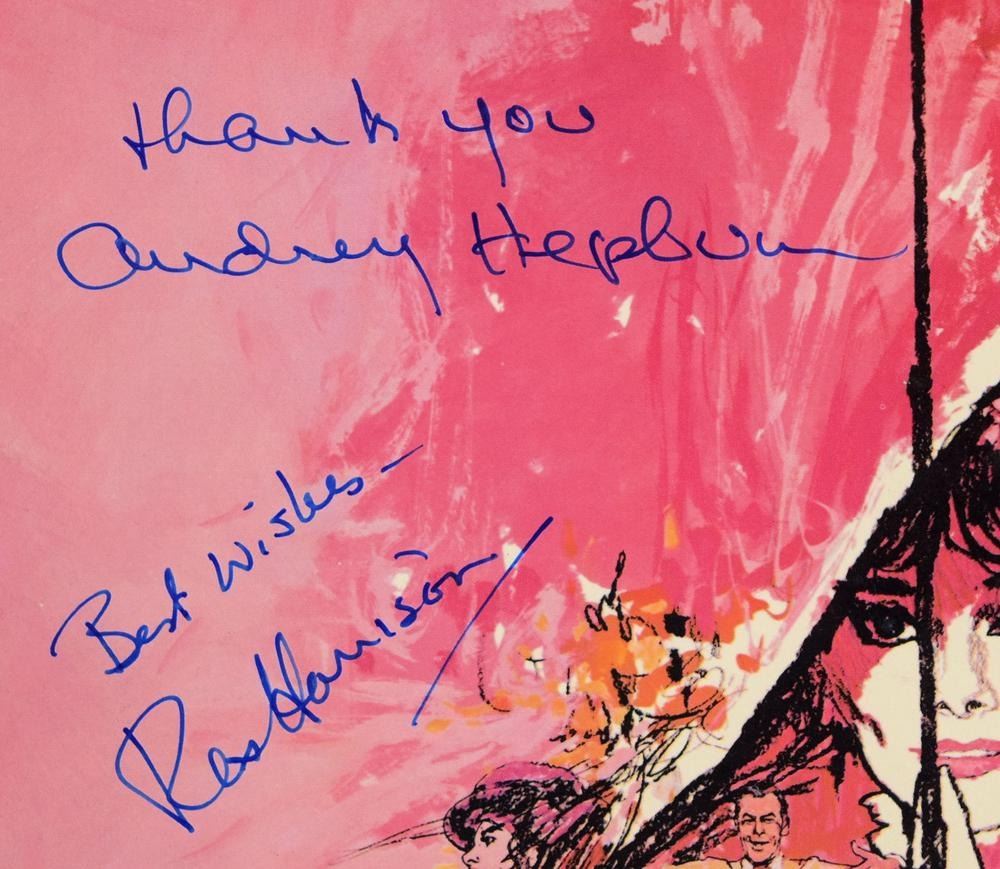 thank you
Audrey Hepburn
Best Wishes -
Rex Harrison